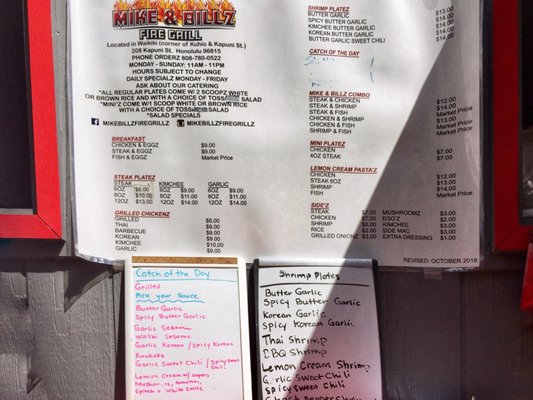 MIKE & BILLZ
FIRE GRILL
Located in Waikiki (corner of Kuhio & Kapuni St.)
208 Kapuni St. Honolulu 96815
PHONE ORDERZ 808-780-0522
MONDAY - SUNDAY: 11AM - 11PM
HOURS SUBJECT TO CHANGE
DAILY SPECIALZ MONDAY - FRIDAY
ASK ABOUT OUR CATERING
*ALL REGULAR PLATES COME W/ 2 SCOOPZ WHITE
OR BROWN RICE AND WITH A CHOICE OF TOSSED SALAD
*MINI'Z COME W/1 SCOOP WHITE OR BROWN RICE
WITH A CHOICE OF TOSSED SALAD
*SALAD SPECIALS
MIKEBILLZFIREGRILLZ MIKEBILLZFIREGRILLZ
BREAKFAST
CHICKEN & EGGZ $9.00
STEAK & EGGZ $9.00
FISH & EGGZ Market Price
STEAK PLATEZ
STEAK KIMCHEE GARLIC
6OZ $8.00 6OZ $9.00 6OZ $9.00
8OZ $10.00 8OZ $11.00 8OZ $11.00
12OZ $13.00 12OZ $14.00 12OZ $14.00
GRILLED CHICKENZ
GRILLED $8.00
THAI $9.00
BARBECUE $9.00
KOREAN $9.00
KIMCHEE $9.00
GARLIC $9.00
SHRIMP PLATEZ
BUTTER GARLIC $13.00
SPICY BUTTER GARLIC $14.00
KIMCHEE BUTTER GARLIC $14.00
KOREAN BUTTER GARLIC $14.00
BUTTER GARLIC SWEET CHILI $14.00
CATCH OF THE DAY
MIKE & BILLZ COMBO
STEAK & CHICKEN $12.00
STEAK & SHRIMP $14.00
STEAK & FISH Market Price
CHICKEN & SHRIMP $14.00
CHICKEN & FISH Market Price
SHRIMP & FISH Market Price
MINI PLATEZ
CHICKEN $7.00
4OZ STEAK $7.00
LEMON CREAM PASTA'Z
CHICKEN $12.00
STEAK 6OZ $13.00
SHRIMP $14.00
FISH Market Price
SIDE'Z
STEAK $7.00 MUSHROOMZ $3.00
CHICKEN $7.00 EGG'Z $2.00
SHRIMP $6.00 KIMCHEE $2.00
RICE $2.00 SIDE MAC $3.00
GRILLED ONIONZ $3.00 EXTRA DRESSING $1.00
REVISED: OCTOBER 2018
Catch of the Day
Grilled
Pick your Sauce
Butter Garlic
Spicy Butter Garlic
Garlic Sesame
Wasbi Sesame
Garlic Korean / Spicy Korean
Furukake
Garlic Sweet Chili / Spicy Sweet Chili
Lemon Cream w/ capers,
Mushrooms, tomatoes,
Spinach & White Sauce
Shrimp Plates
Butter Garlic
Spicy Butter Garlic
Korean Garlic
Spicy Korean Garlic
Thai Shrimp
BBQ Shrimp
Lemon Cream Shrimp
Garlic Sweet Chili
Spicy Sweet Chili